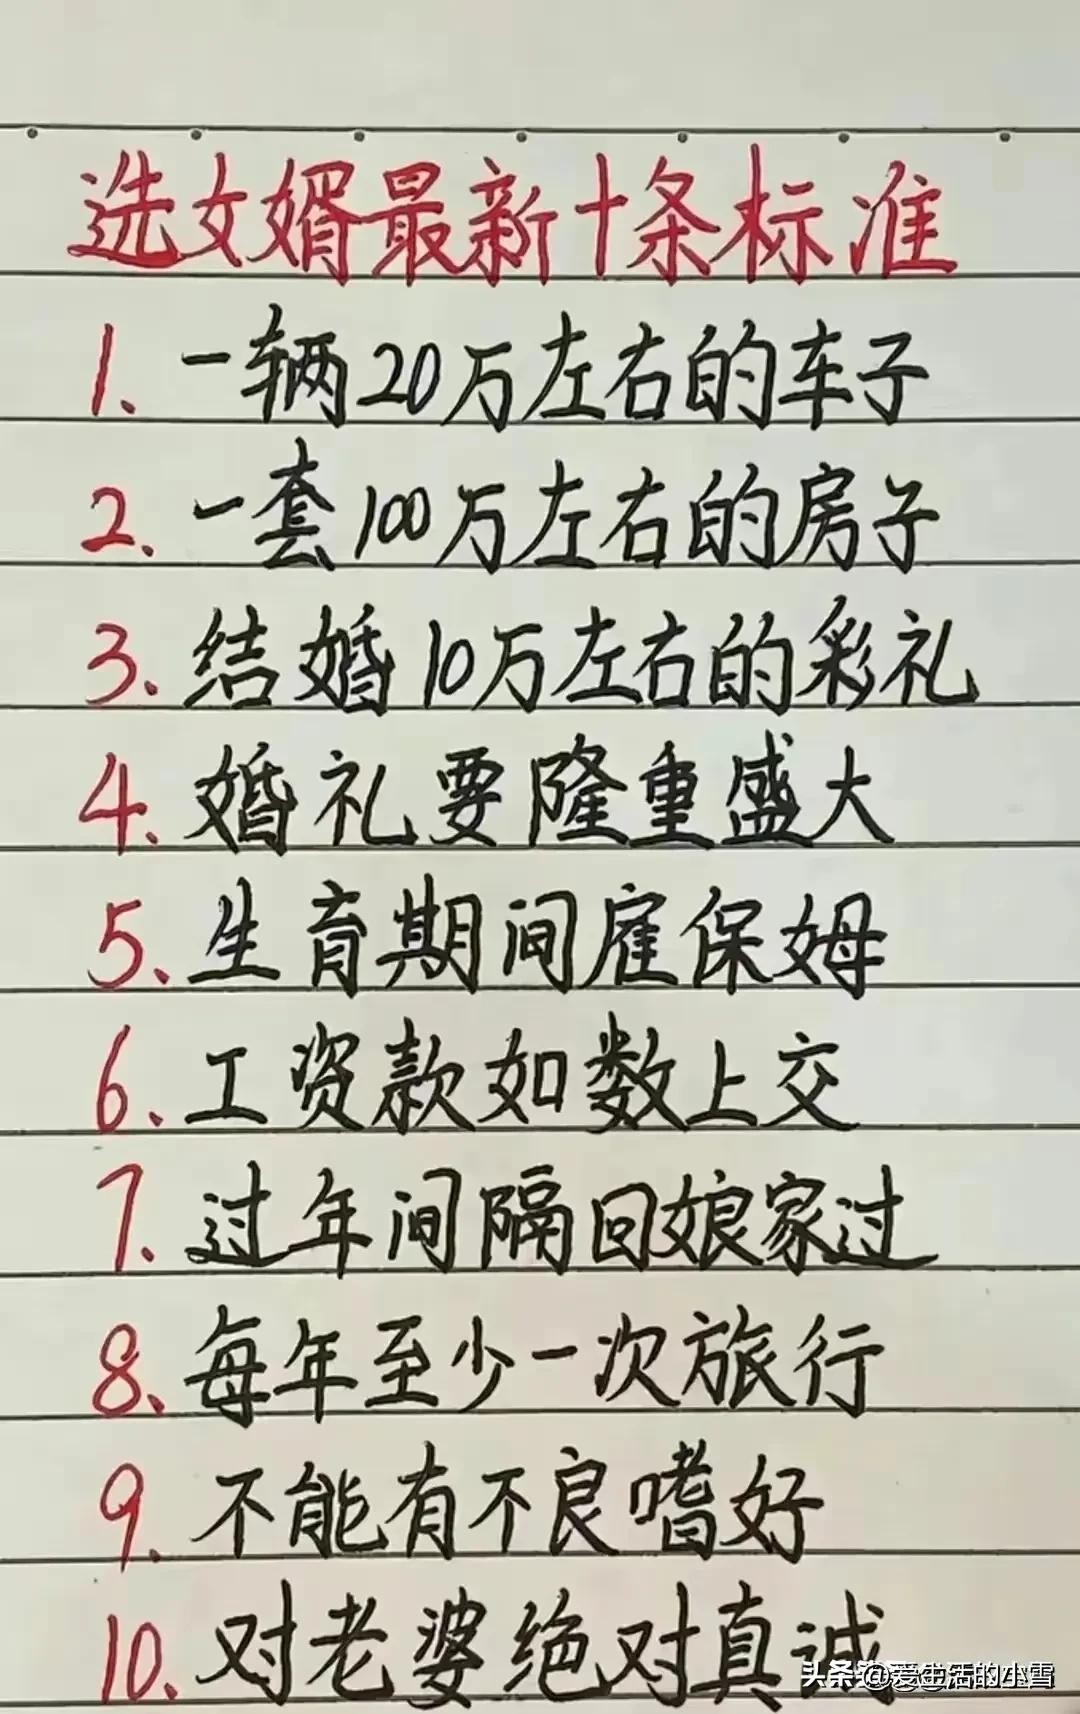 选女婿最新十条标准
1、一辆20万左右的车子
2、一套100万左右的房子
3、结婚10万左右的彩礼
4、婚礼要隆重盛大
5、生育期间雇保姆
6、工资款如数上交
7、过年间隔回娘家过
8、每年至少一次旅行
9、不能有不良嗜好
10、对老婆绝对真诚
头条 @爱生活的小雪